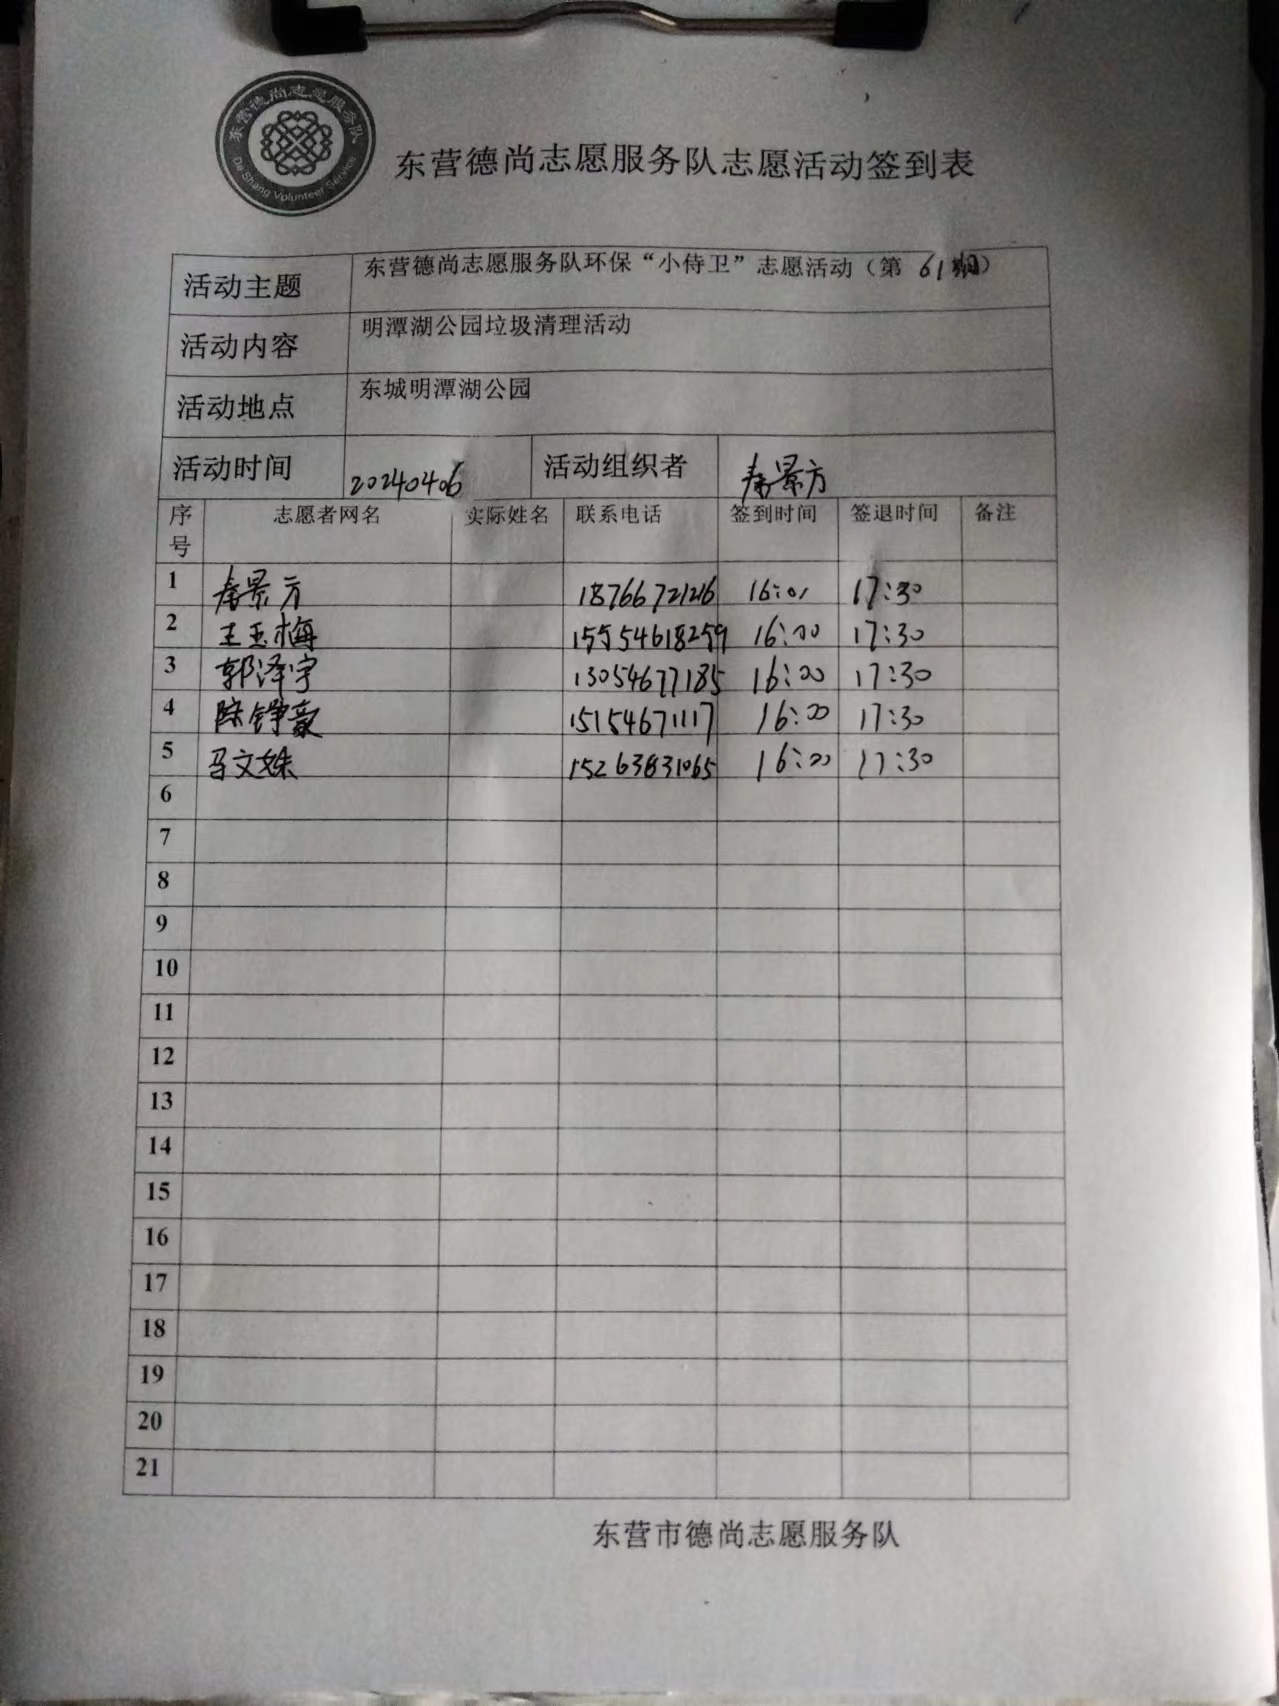 东营德尚志愿服务队
De Shang Volunteer Service
东营德尚志愿服务队志愿活动签到表
活动主题 东营德尚志愿服务队环保“小侍卫”志愿活动（第61期）
活动内容 明潭湖公园垃圾清理活动
活动地点 东城明潭湖公园
活动时间 20240406 活动组织者 秦景方
序号 志愿者网名 实际姓名 联系电话 签到时间 签退时间 备注
1 秦景方 18766721216 16:01 17:30
2 王玉梅 15554618259 16:00 17:30
3 郭泽宇 13054677185 16:00 17:30
4 陈铮豪 15154671117 16:00 17:30
5 马文姝 15263831065 16:00 17:30
6
7
8
9
10
11
12
13
14
15
16
17
18
19
20
21
东营市德尚志愿服务队